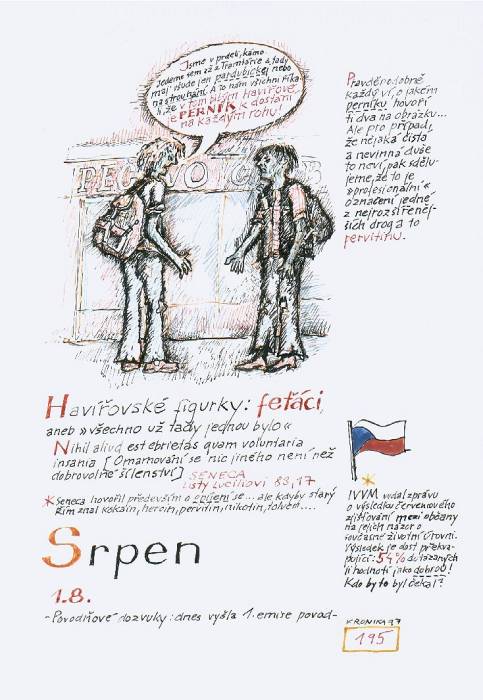 Jsme v prdeli, kámo
Jedeme sem až z Tramtárie a tady
mají všude jen pardubickej nebo
na strouhání. A to nám všichni říka
li, že v tem blbym Havířově
je PERNÍK k dostání
na každým rohu!
Pravděpodobně
každý ví, o jakém
perníku hovoří
ti dva na obrázku...
Ale pro případ,
že nějaká čistá
a nevinná duše
to neví, pak sdělu-
jeme, že to je
»profesionální«
označení jedné
z nejrozšířeněj-
ších drog a to
pervitinu.
Havířovské figurky: feťáci,
aneb »všechno už tady jednou bylo«
Nihil aliud est ebrietas quam voluntaria
insania [Omamování se nic jiného není než
dobrovolné šílenství] SENECA
Listy Luciliovi 83,17
* Seneca hovořil především o opíjení se... ale kdyby starý
Řím znal kokain, heroin, pervitin, nikotin, toluen....
*
IVVM vydal zprávu
o výsledku červencového
zjišťování mezi občany
na jejich názor o
současné životní úrovni.
Výsledek je dost překva-
pující: 54% dotázaných
ji hodnotí jako dobrou!
Kdo by to byl čekal?
Srpen
1.8.
- Povodňové dozvuky: dnes vyšla 1. emise povod-
KRONIKA 97
195